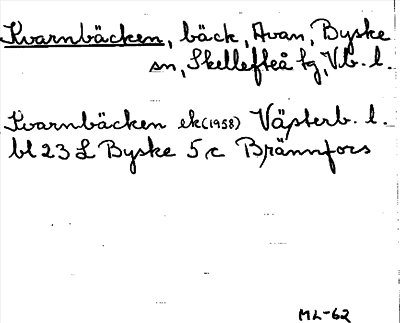 Kvarnbäcken, bäck, Avan, Byske
sn, Skellefteå tg, Vb. l.
Kvarnbäcken ek (1958) Västerb. l.
bl 23 L Byske 5 c Brännfors
ML-62